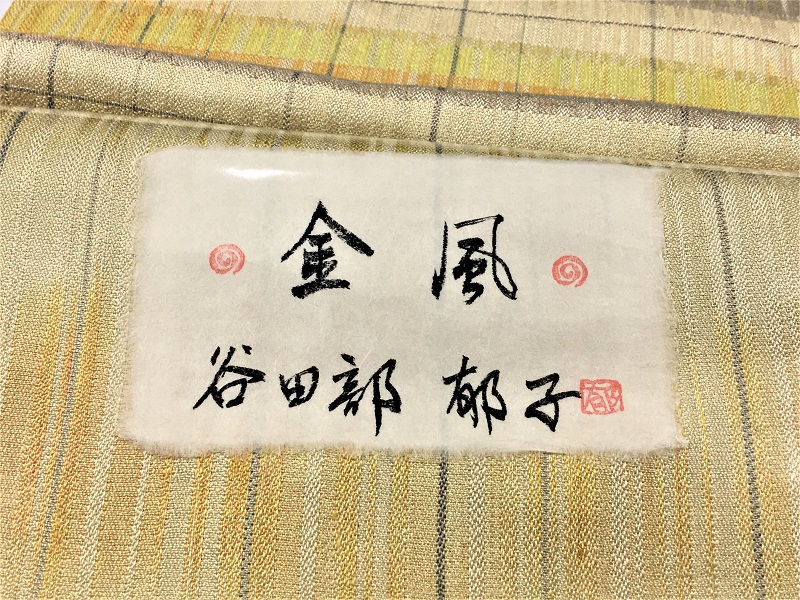 金風
谷田部 郁子